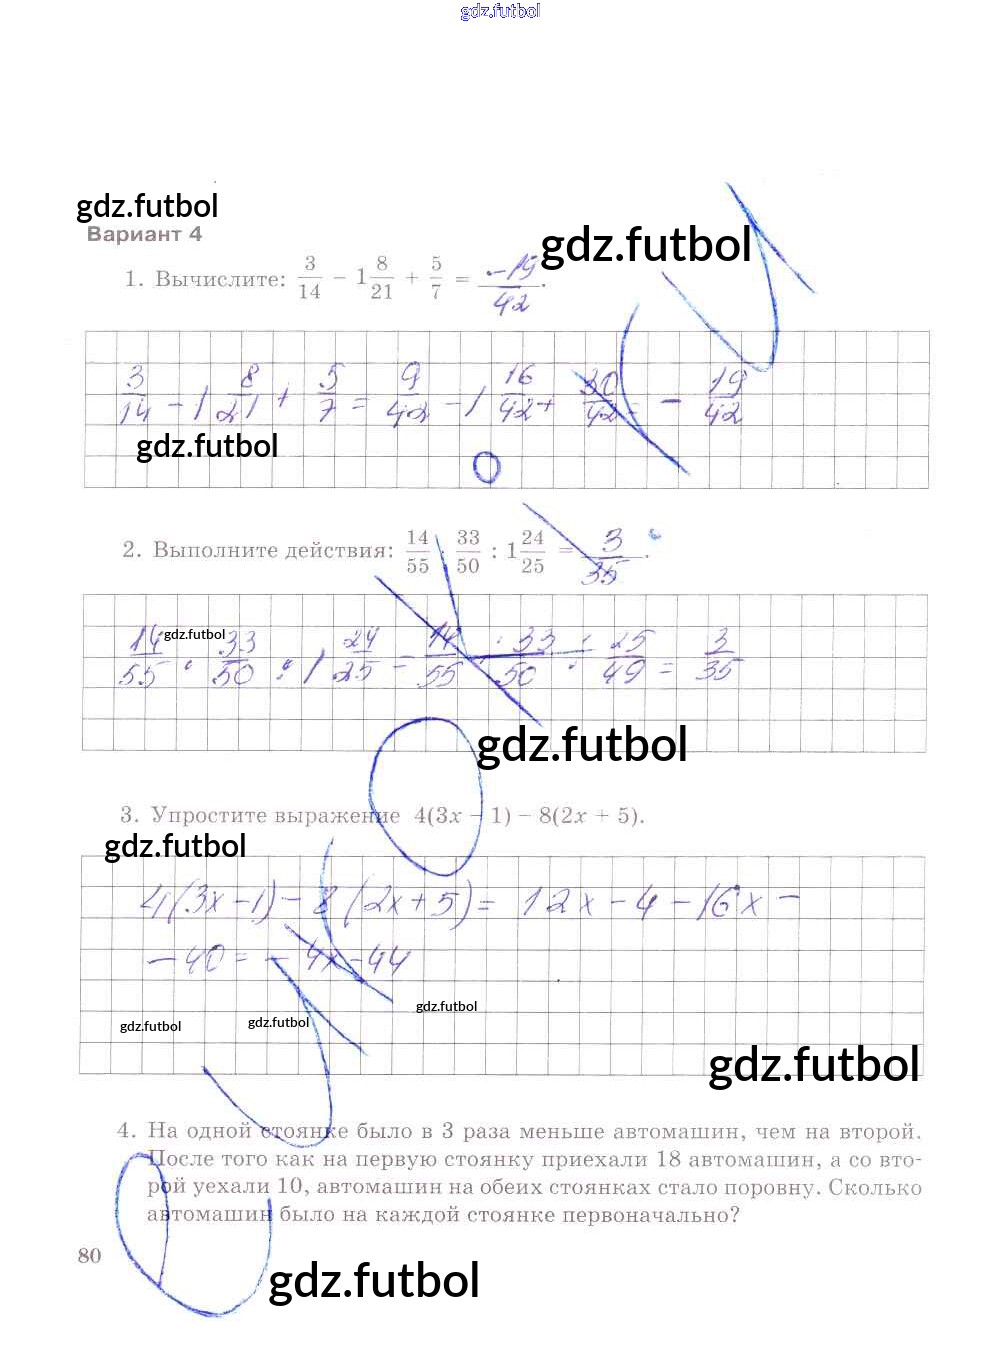 gdz.futbol
gdz.futbol
Вариант 4
gdz.futbol
1. Вычислите: 3/14 − 1 8/21 + 5/7 = −19/42.
3/14 − 1 8/21 + 5/7 = 9/42 − 1 16/42 + 30/42 = − 19/42
gdz.futbol
2. Выполните действия: 14/55 · 33/50 : 1 24/25 = 3/35.
gdz.futbol
14/55 · 33/50 : 1 24/25 = 14/55 · 33/50 : 25/49 = 3/35
gdz.futbol
3. Упростите выражение 4(3x − 1) − 8(2x + 5).
gdz.futbol
4(3x−1)−8(2x+5)= 12x−4−16x−
−40=−4x−44
gdz.futbol
gdz.futbol gdz.futbol
gdz.futbol
4. На одной стоянке было в 3 раза меньше автомашин, чем на второй.
После того как на первую стоянку приехали 18 автомашин, а со вто-
рой уехали 10, автомашин на обеих стоянках стало поровну. Сколько
автомашин было на каждой стоянке первоначально?
80
gdz.futbol